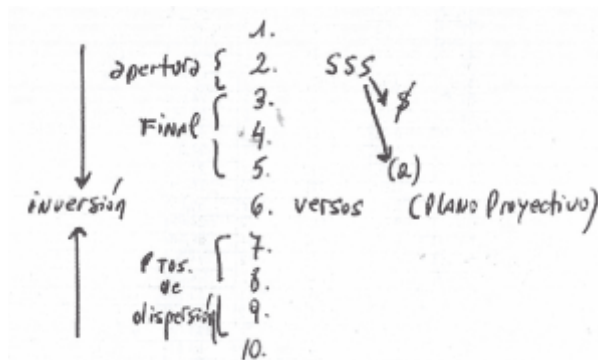 1.
apertura { 2. SSS
3. $
FINAL { 4.
5. (a)
inversión 6. versos (Plano Proyectivo)
7.
PTOS. {
de 8.
dispersión 9.
10.